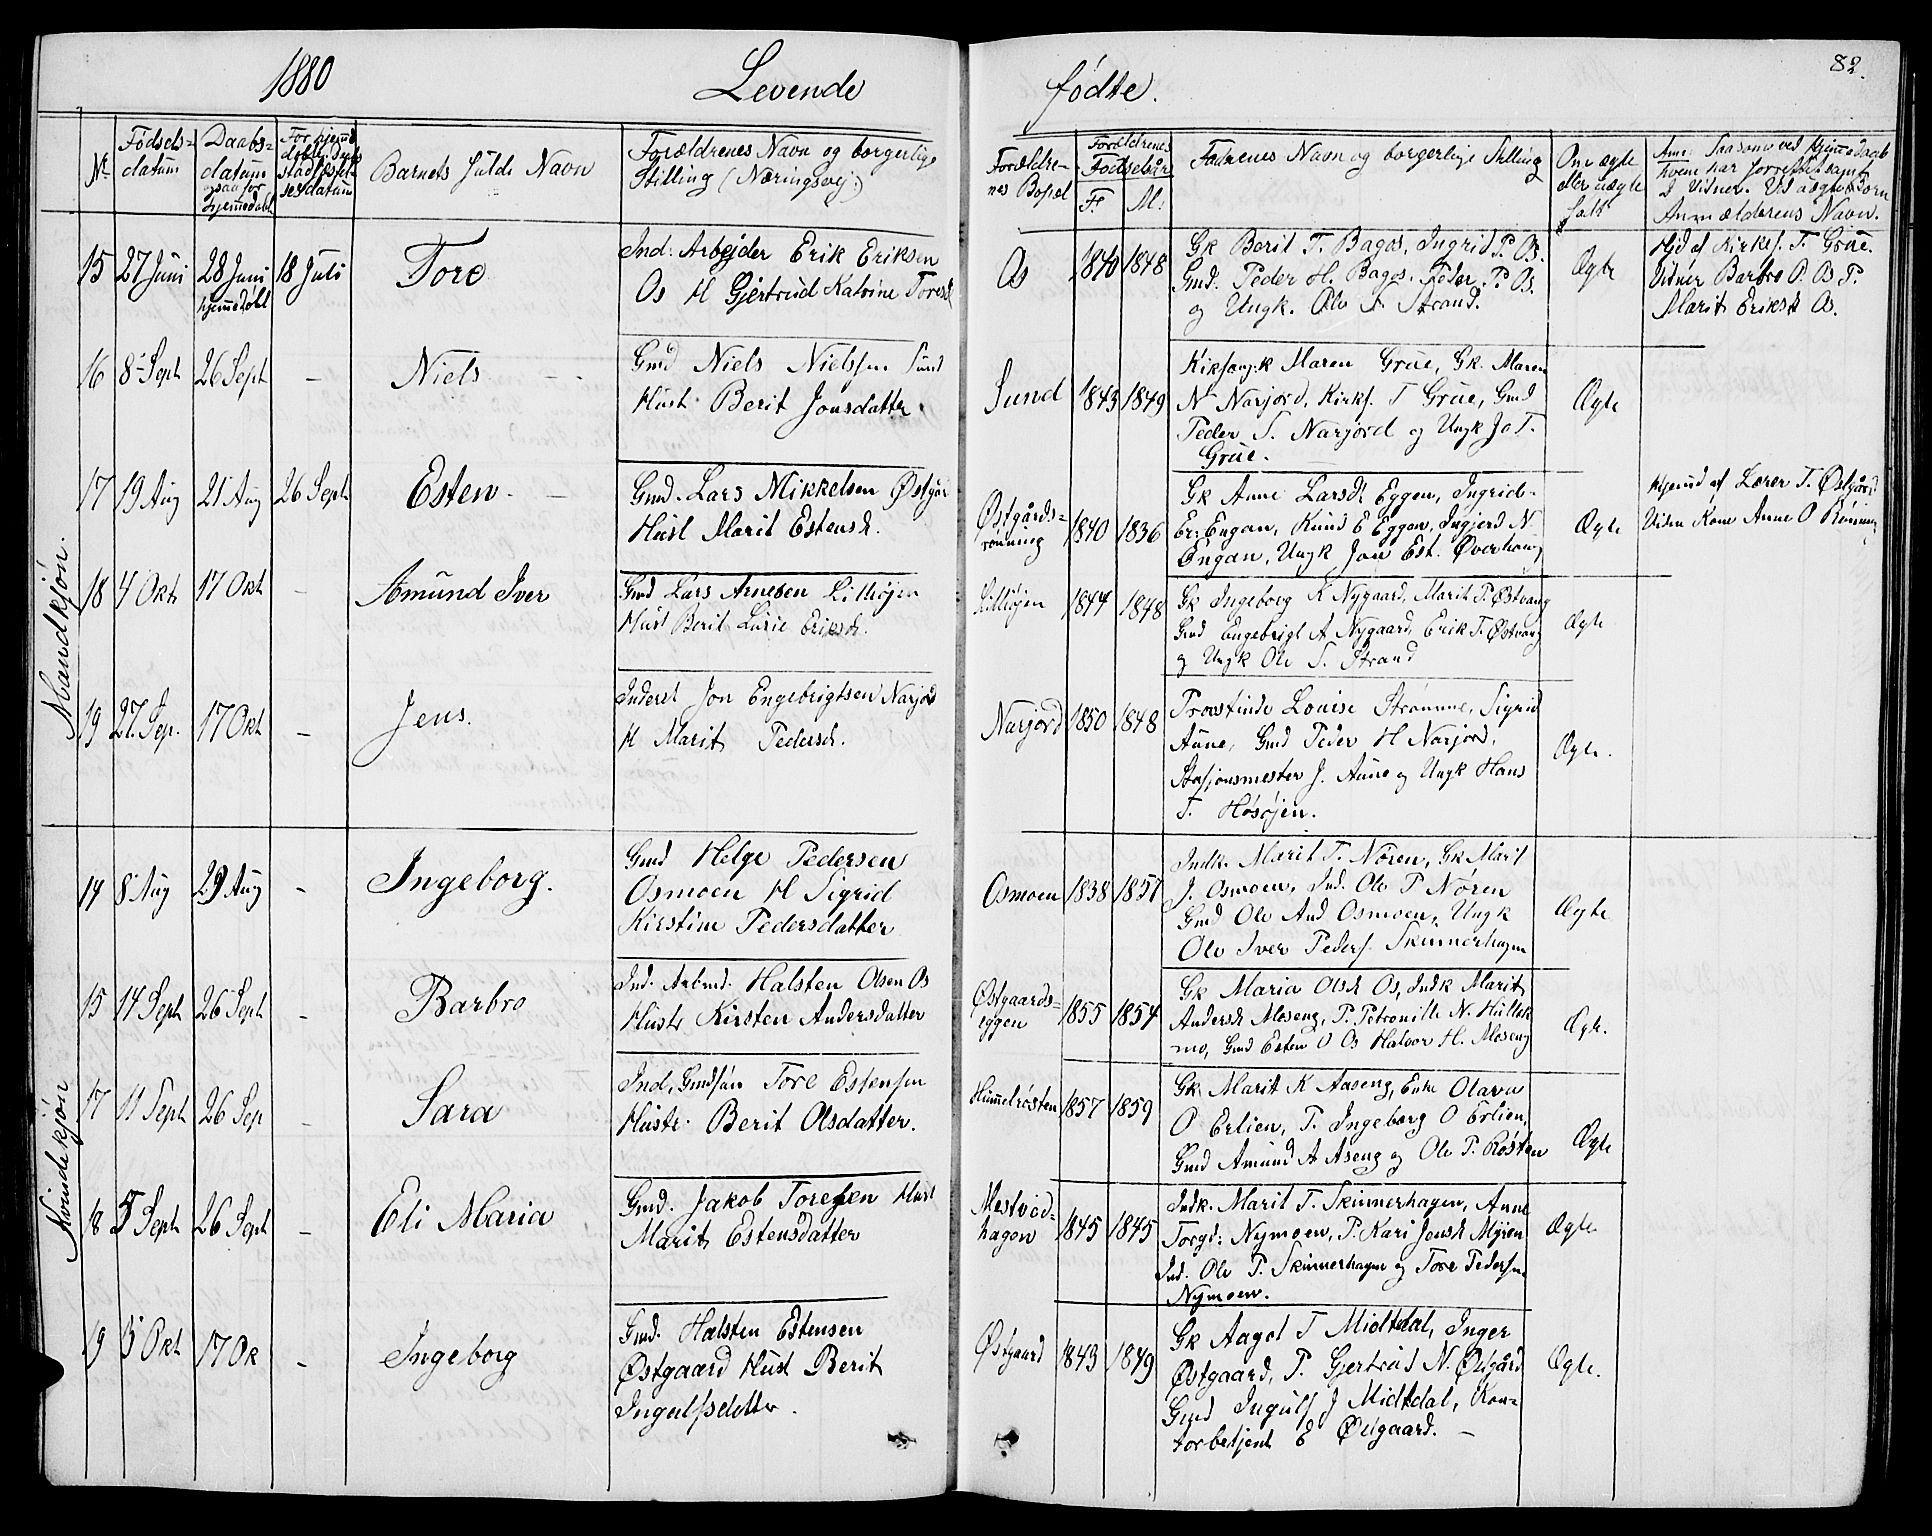 1880 Levende
fødte. 82.
Nr Fødsels= datum
Daabs= datum ogsaa for hjemmedøbt
Barnets fulde Navn
Forældrenes Navn og borgerlige
Stilling (Næringsvej.)
Forældre= nes Bopæl
Forældrenes Fødselsår
F. M.
Faddrenes Navn og borgerlige Stilling
Om ægte eller uægte født
Anmælderens Navn.
Mandkjøn.
15 27 Juni 28 Juni hjemmedøbt 18 Juli Tore
Ind. Arbejder Erik Eriksen
Os H Gjertrud Katrine Toresd
Os 1840 1848
Gk Berit T. Bagos, Ingrid P. Os.
Gmd. Peder H. Bagos, Peder P. Os.
og Ungk. Ole T Strand.
Ægte
Hjd af Kirkes. T. Grue.
Vidner Barbro P. Os P.
Marit Eriksd Os.
16 8 Sept 26 Sept – Niels
Gmd Niels Nielsen Sund
Hust Berit Jonsdatter
Sund 1843 1849
Kirksang.k Maren Grue, Gk. Maren
N Narjord, Kirks. T Grue, Gmd
Peder S. Narjord og Ungk Jo T.
Grue.
Ægte
17 19 Aug 21 Aug 26 Sept Esten
Gmd. Lars Mikkelsen Østgår
Hust Marit Estensd.
Østgårds= rønning 1840 1836
Gk Anne Larsd Eggen, Ingrid
Er. Engan, Knud E Eggen, Ingjerd N
Engan, Ungk Jon Est. Øverhaug
Ægte
Hjemd af Lærer T. Østgård
Vidn Kone Anne O Rønning
18 4 Okt 17 Okt – Amund Iver
Gmd Lars Arnesen Lilleøjen
Hust Berit Lusie Eriksd.
Lilleøjen 1844 1848
Gk Ingeborg K Nygaard, Marit P. Østvang
Gmd Engebrigt A Nygaard, Erik T. Østvang
og Ungk Ole S. Strand
Ægte
19 27. Sep. 17 Okt – Jens.
Inderst Jon Engebrigtsen Narjord
H Marit Pedersd.
Narjord 1850 1848
Provstinde Louise Strømme, Sigrid
Aune, Gmd Peder H Narjord,
Stasjonsmester J. Aune og Ungk Hans
T. Høsøjen.
Ægte.
Kvindekjøn
14 8 Aug 29 Aug – Ingeborg.
Gmd Helge Pedersen
Osmoen H Sigrid
Kirstine Pedersdatter
Osmoen 1838 1857
Indk. Marit T. Nøren, Gk Marit
J. Osmoen, Ind. Ole P Nøren
Gmd Ole And Osmoen, Ungk
Ole Iver Peders. Skinnerhagen
Ægte
15 14 Sept 26 Sept – Barbro
Ind. Arbmd. Halsten Olsen Os
Hustr Kirsten Andersdatter
Østgaards= eggen 1855 1854
Gk Maria Olsd Os, Indk Marit
Andersd Moseng, P. Petronille N. Hullek
mo, Gmd Esten O Os Halvor H. Moseng
Ægte.
17 11 Sept 26 Sep – Sara
Ind. Gmdsøn Tore Estensen
Hustr. Berit Olsdatter.
Hummelrøsten 1857 1859
Gk Marit K Aaseng, Enke Olava
O Erlien, P. Ingeborg O Erlien,
Gmd Amund A Aseng og Ole P. Røsten
Ægte
18 5 Sept 26 Sept – Eli Maria
Gmd. Jakob Toresen Hust
Marit Estensdatter
Mestved= hagen 1845 1845
Indk. Marit T. Skinnerhagen, Anne
Torgd: Nymoen, P. Kari Jonsd Myren
Ind. Ole P. Skinnerhagen og Tore Pedersen
Nymoen.
Ægte
19 5 Okt 17 Ok – Ingeborg
Gmd. Halsten Estensen
Østgaard Hust Berit
Ingulfsdatter.
Østgaard 1843 1849
Gk Aagot T Midtdal, Inger
Østgaard, P. Gjertrud N. Østgård
Gmd Ingulf J Midtdal, Kon=
torbetjent E Østgaard. –
Ægte.